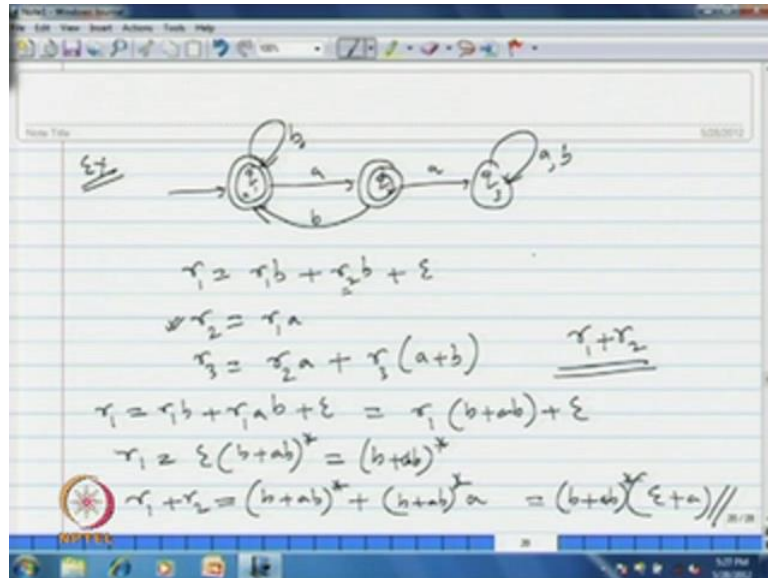 Note1 - Windows Journal
File Edit View Insert Actions Tools Help
Note Title
5/28/2012
Ex
b
q1
a
q2
a
q3
a, b
b
r₁ = r₁b + r₂b + ε
r₂ = r₁a
r₃ = r₂a + r₃(a+b)
r₁+r₂
r₁ = r₁b + r₁ab + ε = r₁(b+ab) + ε
r₁ = ε(b+ab)* = (b+ab)*
r₁+r₂ = (b+ab)* + (b+ab)*a = (b+ab)*(ε+a)//
NPTEL
5/28/2012